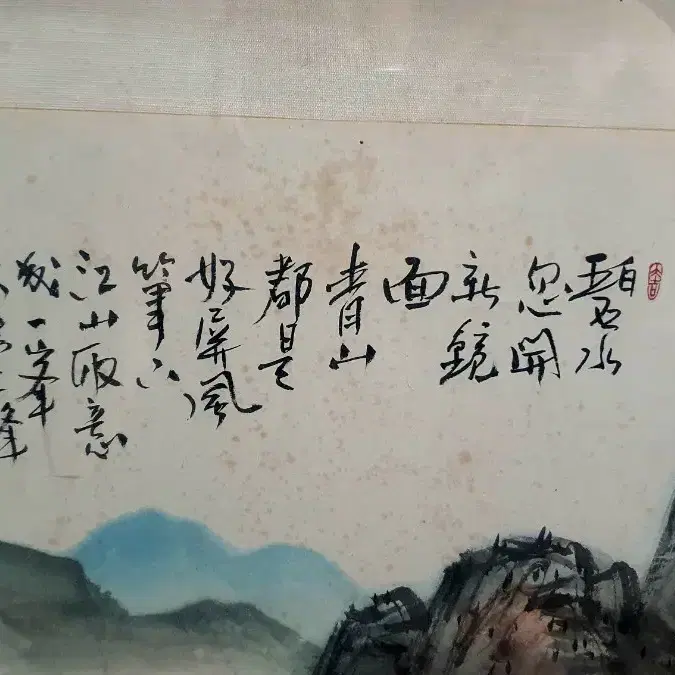 大吉
碧水
忽開
新鏡
面
青山
都是
好屏風
筆下
江山 意
一峯
峯